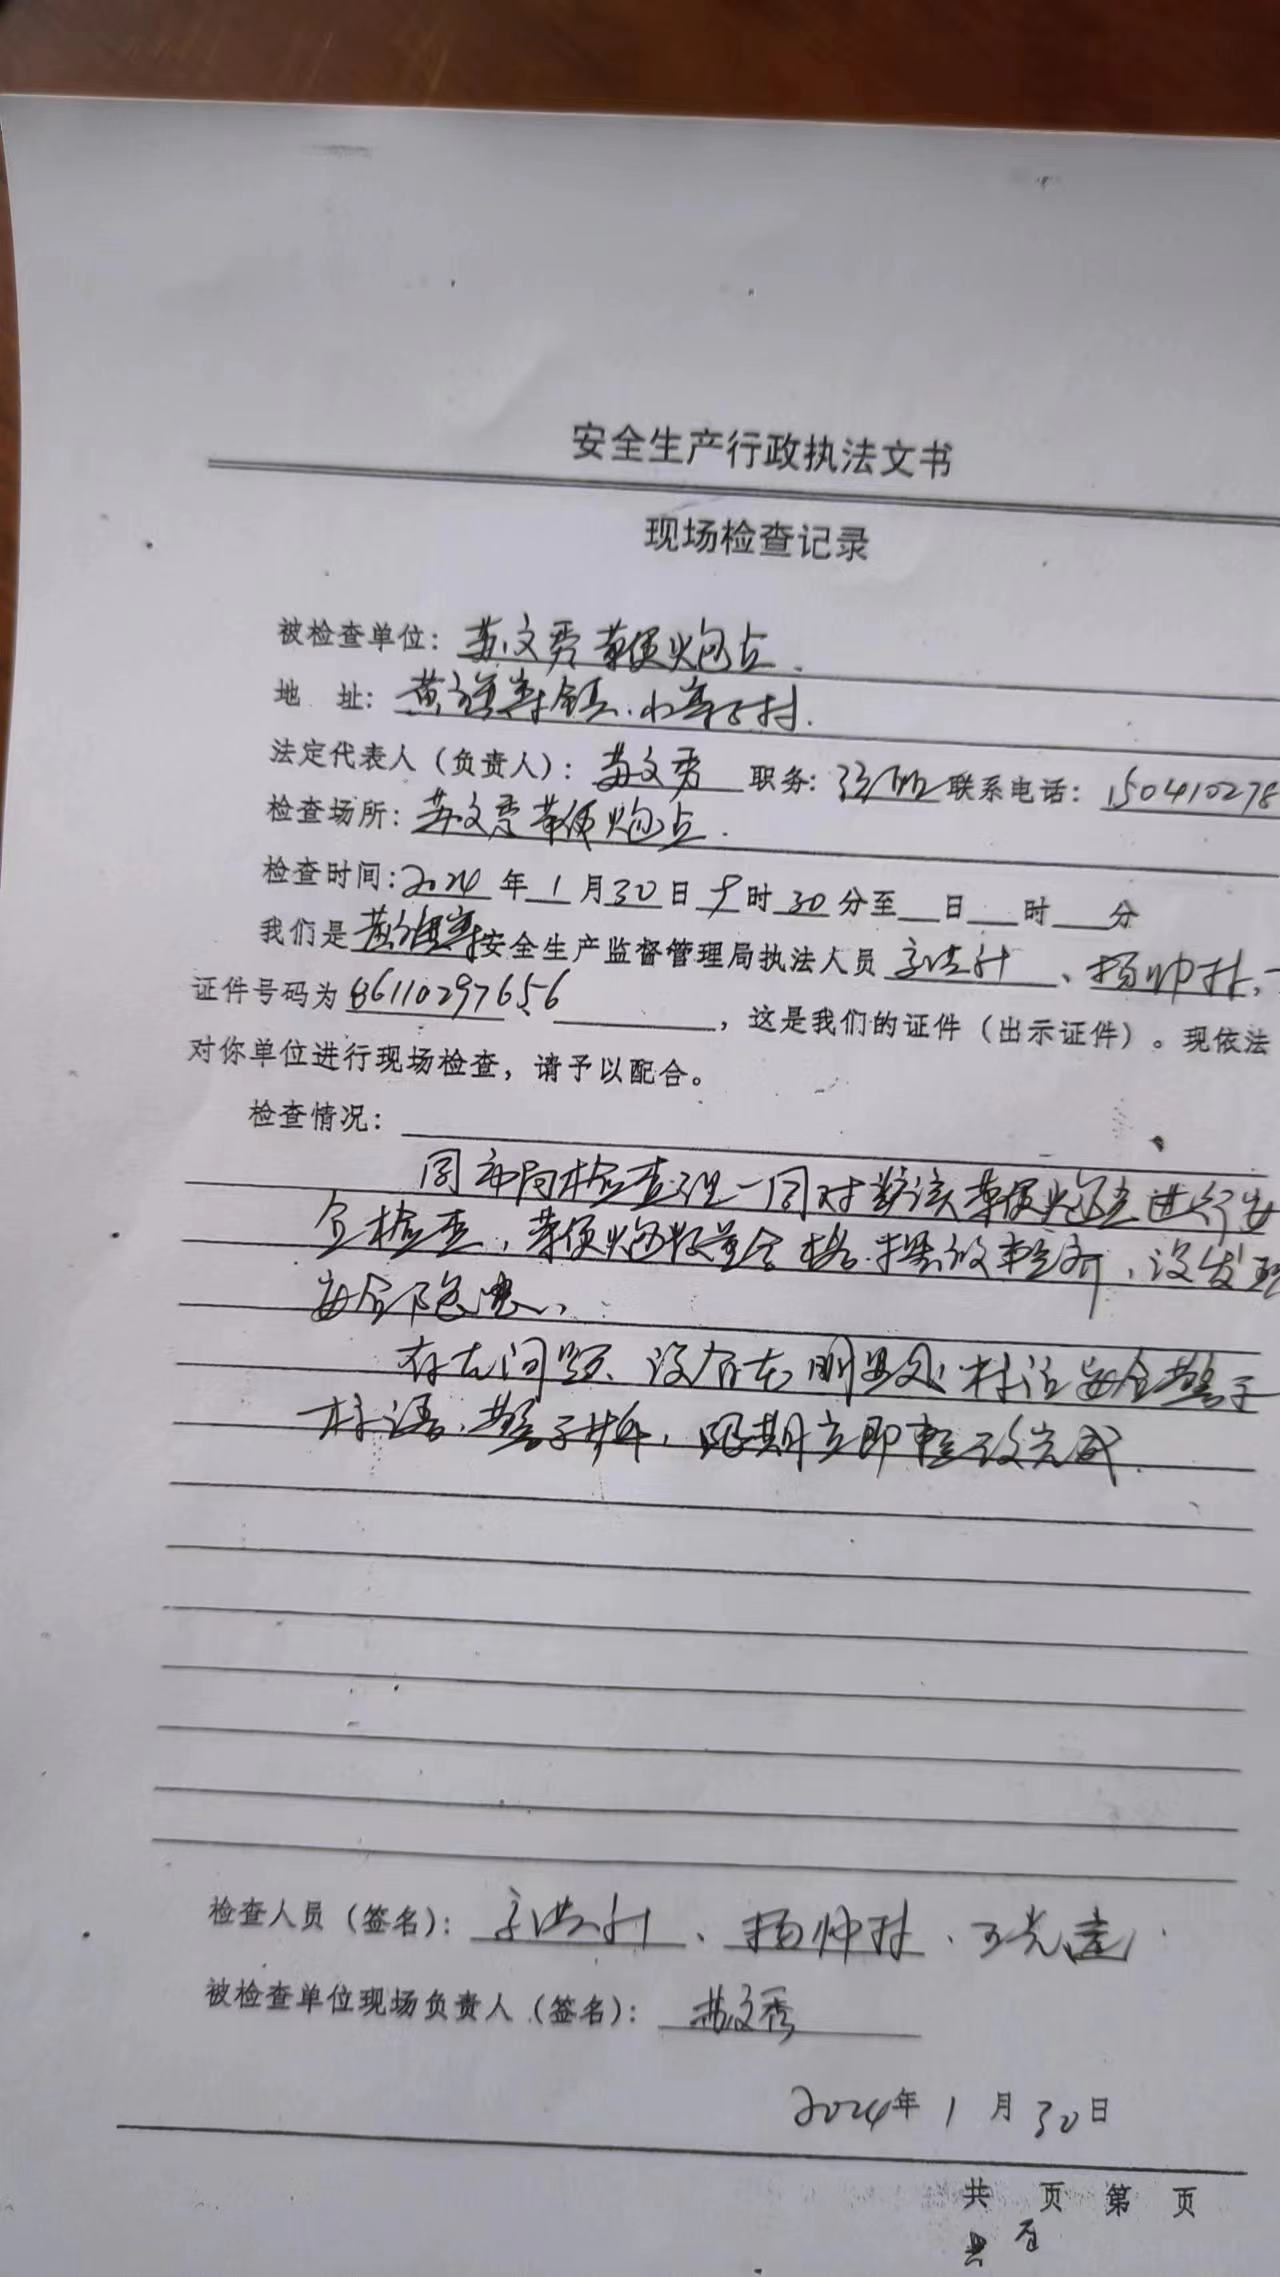 安全生产行政执法文书
现场检查记录
被检查单位：苏文秀鞭炮点.
地 址：黄旗寨镇.小寨子村.
法定代表人（负责人）：苏文秀 职务： 联系电话：150410278
检查场所：苏文秀鞭炮点.
检查时间：2024年1月30日9时30分至 日 时 分
我们是黄旗寨安全生产监督管理局执法人员 、杨帅
证件号码为86110297656 ，这是我们的证件（出示证件）。现依法
对你单位进行现场检查，请予以配合。
检查情况：
同市局检查 一同对 该鞭炮点进行安
全检查，鞭炮数量合格.摆放整齐，没发现
安全隐患，
存在问题、没有在明显处 安全警示
标语、警示牌，限期立即整改完成.
检查人员（签名）： 、杨帅 、 光
被检查单位现场负责人（签名）：苏文秀
2024年1月30日
共 页 第 页